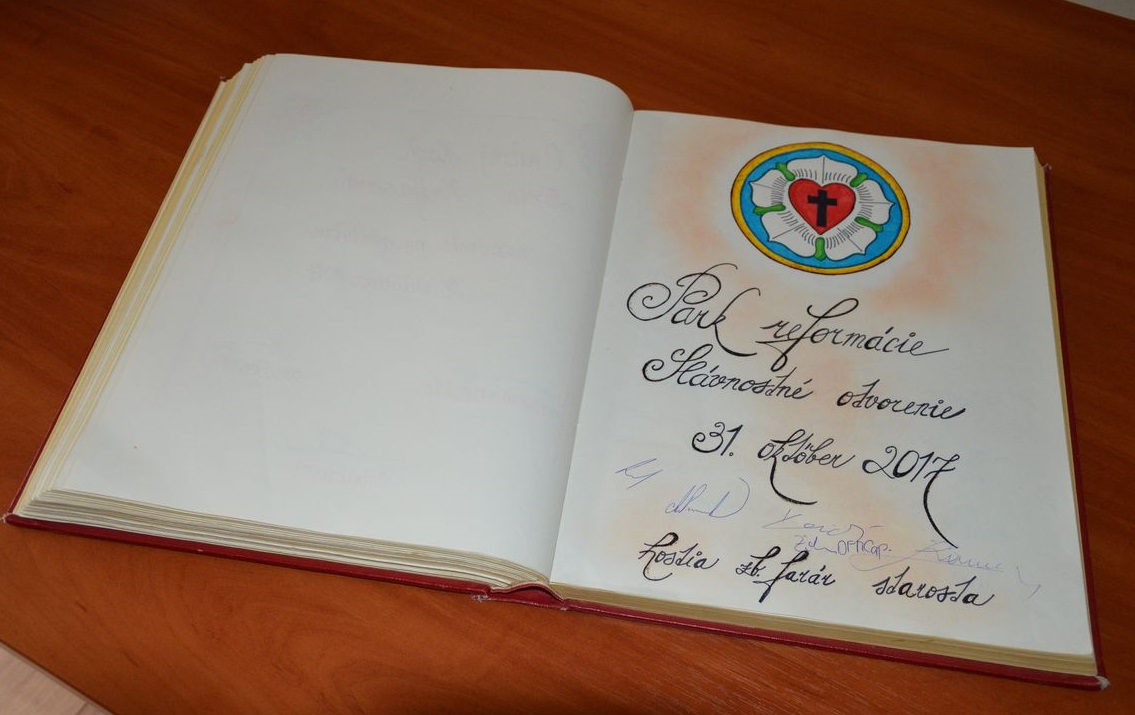 Park reformácie
Slávnostné otvorenie
31. október 2017
hostia zb. farár starosta